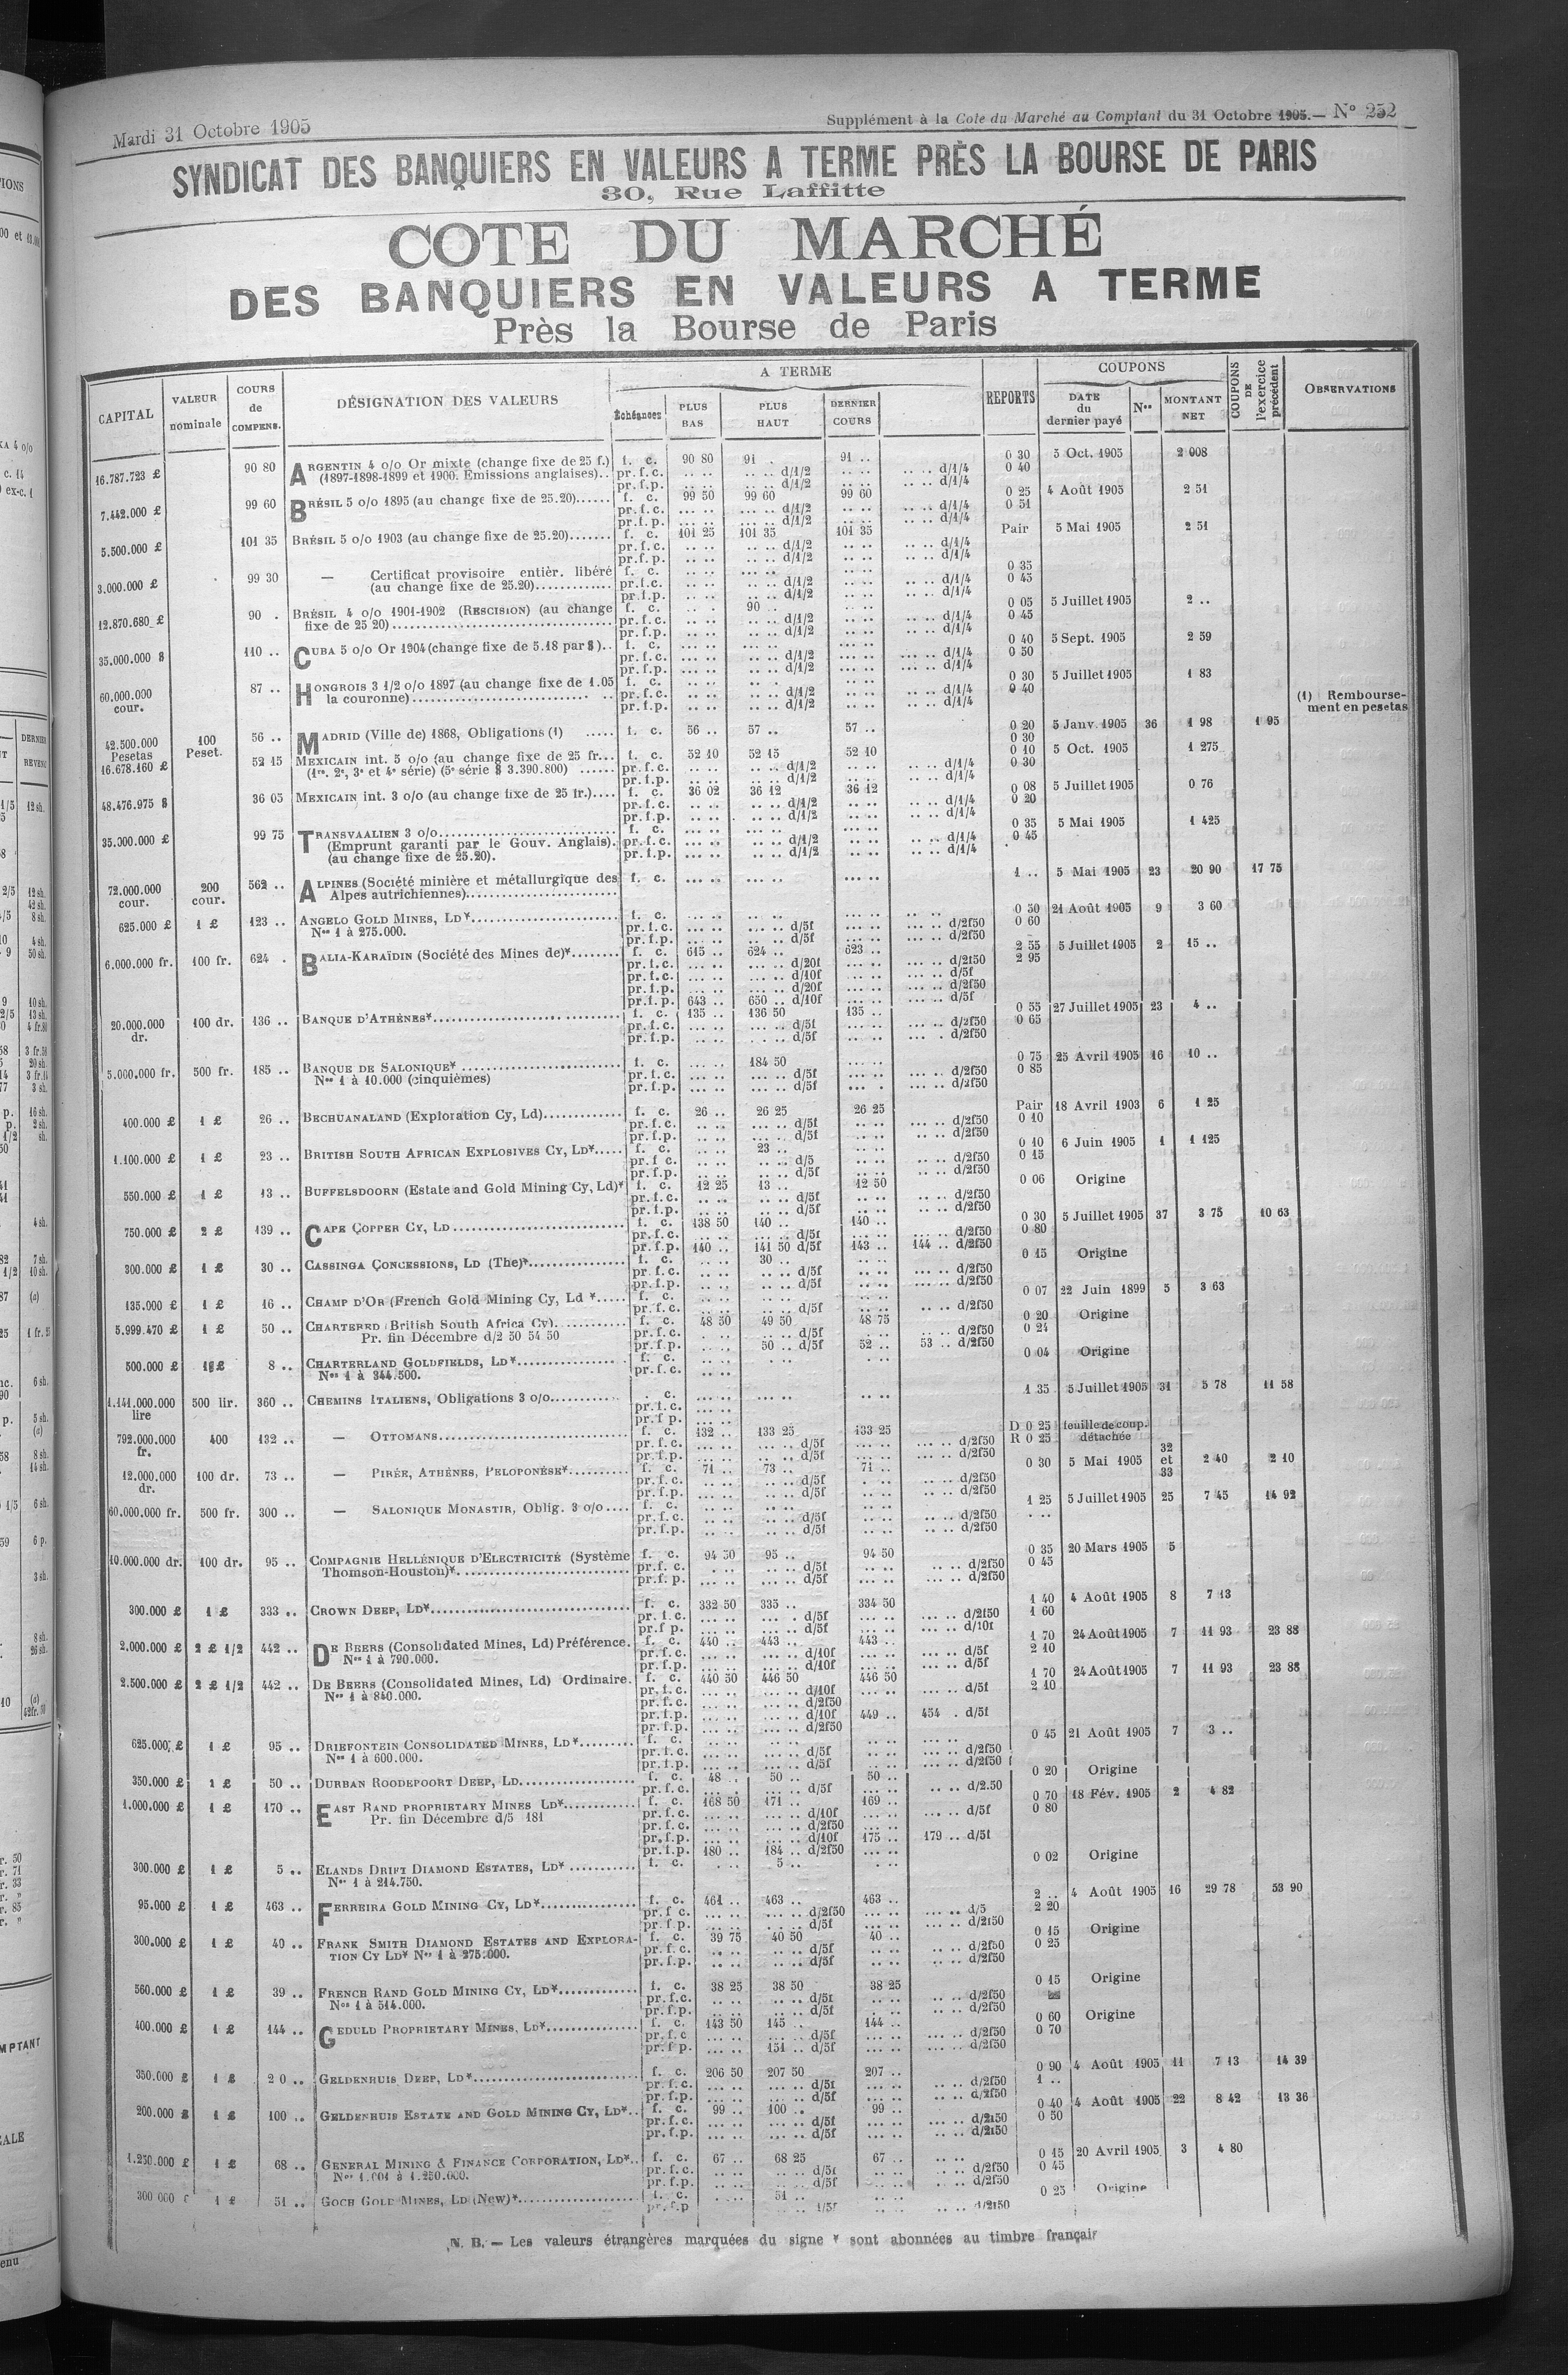 Mardi 31 Octobre 1905
Supplément à la Cote du Marché au Comptant du 31 Octobre 1905.— N° 252
SYNDICAT DES BANQUIERS EN VALEURS A TERME PRÈS LA BOURSE DE PARIS
30, Rue Laffitte
COTE DU MARCHÉ
DES BANQUIERS EN VALEURS A TERME
Près la Bourse de Paris
CAPITAL VALEUR nominale COURS de COMPENS. DÉSIGNATION DES VALEURS A TERME Échéances PLUS BAS PLUS HAUT DERNIER COURS REPORTS COUPONS DATE du dernier payé Nos MONTANT NET COUPONS DE l'exercice précédent OBSERVATIONS
16.787.723 £ 90 80 ARGENTIN 4 o/o Or mixte (change fixe de 25 f.) f. c. 90 80 91 .. 91 .. 0 30 5 Oct. 1905 2 008
(1897-1898-1899 et 1900. Emissions anglaises).. pr. f. c. .. .. .. .. d/1/2 .. .. .. .. d/1/4 0 40
pr. f. p. .. .. .. .. d/1/2 .. .. .. .. d/1/4
7.442.000 £ 99 60 BRÉSIL 5 o/o 1895 (au change fixe de 25.20)...... f. c. 99 50 99 60 99 60 0 25 4 Août 1905 2 51
pr. f. c. d/1/2 d/1/4 0 51
pr. f. p. d/1/2 d/1/4
5.500.000 £ 101 35 BRÉSIL 5 o/o 1903 (au change fixe de 25.20)....... f. c. 101 25 101 35 101 35 Pair 5 Mai 1905 2 51
pr. f. c. d/1/2 d/1/4
pr. f. p. d/1/2 d/1/4
3.000.000 £ 99 30 — Certificat provisoire entièr. libéré f. c. 0 35
(au change fixe de 25.20)............. pr. f. c. d/1/2 d/1/4 0 45
pr. f. p. d/1/2 d/1/4
12.870.680 £ 90 . BRÉSIL 4 o/o 1901-1902 (RESCISION) (au change f. c. 90 .. 0 05 5 Juillet 1905 2 ..
fixe de 25 20) pr. f. c. d/1/2 d/1/4 0 45
pr. f. p. d/1/2 d/1/4
35.000.000 $ 110 .. CUBA 5 o/o Or 1904 (change fixe de 5.18 par $).. f. c. 0 40 5 Sept. 1905 2 59
pr. f. c. d/1/2 d/1/4 0 50
pr. f. p. d/1/2 d/1/4
60.000.000 cour. 87 .. HONGROIS 3 1/2 o/o 1897 (au change fixe de 1.05 f. c. 0 30 5 Juillet 1905 1 83
la couronne) pr. f. c. d/1/2 d/1/4 0 40
pr. f. p. d/1/2 d/1/4
(1) Rembourse-
ment en pesetas
42.500.000 Pesetas 100 Peset. 56 .. MADRID (Ville de) 1868, Obligations (1) ..... f. c. 56 .. 57 .. 57 .. 0 20 5 Janv. 1905 36 1 98 1 95
0 30
16.678.160 £ 52 15 MEXICAIN int. 5 o/o (au change fixe de 25 fr... f. c. 52 10 52 15 52 10 0 10 5 Oct. 1905 1 275
(1re, 2e, 3e et 4e série) (5e série $ 3.390.800) ...... pr. f. c. d/1/2 d/1/4 0 30
pr. f. p. d/1/2 d/1/4
48.476.975 $ 36 05 MEXICAIN int. 3 o/o (au change fixe de 25 fr.).... f. c. 36 02 36 12 36 12 0 08 5 Juillet 1905 0 76
pr. f. c. d/1/2 d/1/4 0 20
pr. f. p. d/1/2 d/1/4
35.000.000 £ 99 75 TRANSVAALIEN 3 o/o f. c. 0 35 5 Mai 1905 1 425
(Emprunt garanti par le Gouv. Anglais). pr. f. c. d/1/2 d/1/4 0 45
(au change fixe de 25.20). pr. f. p. d/1/2 d/1/4
72.000.000 cour. 200 cour. 562 .. ALPINES (Société minière et métallurgique des f. c. 1 .. 5 Mai 1905 23 20 90 17 75
Alpes autrichiennes)
625.000 £ 1 £ 123 .. ANGELO GOLD MINES, LD* f. c. 0 50 21 Août 1905 9 3 60
Nos 1 à 275.000. pr. f. c. d/5f d/2f50 0 60
pr. f. p. d/5f d/2f50
6.000.000 fr. 100 fr. 624 . BALIA-KARAÏDIN (Société des Mines de)* f. c. 615 .. 624 .. 623 .. 2 55 5 Juillet 1905 2 15 ..
pr. f. c. d/20f d/2f50 2 95
pr. f. c. d/10f d/5f
pr. f. p. d/20f d/2f50
pr. f. p. 643 .. 650 .. d/10f d/5f
20.000.000 dr. 100 dr. 136 .. BANQUE D'ATHÈNES* f. c. 135 .. 136 50 135 .. 0 55 27 Juillet 1905 23 4 ..
pr. f. c. d/5f d/2f50 0 65
pr. f. p. d/5f d/2f50
5.000.000 fr. 500 fr. 185 .. BANQUE DE SALONIQUE* f. c. 184 50 0 75 25 Avril 1905 16 10 ..
Nos 1 à 10.000 (cinquièmes) pr. f. c. d/5f d/2f50 0 85
pr. f. p. d/5f d/2f50
400.000 £ 1 £ 26 .. BECHUANALAND (Exploration Cy, Ld) f. c. 26 .. 26 25 26 25 Pair 18 Avril 1903 6 1 25
pr. f. c. d/5f d/2f50 0 10
pr. f. p. d/5f d/2f50
1.100.000 £ 1 £ 23 .. BRITISH SOUTH AFRICAN EXPLOSIVES CY, LD* f. c. 23 .. 0 10 6 Juin 1905 1 1 125
pr. f. c. d/5 d/2f50 0 15
pr. f. p. d/5f d/2f50
550.000 £ 1 £ 13 .. BUFFELSDOORN (Estate and Gold Mining Cy, Ld)* f. c. 12 25 13 .. 12 50 0 06 Origine
pr. f. c. d/5f d/2f50
pr. f. p. d/5f d/2f50
750.000 £ 2 £ 139 .. CAPE COPPER CY, LD f. c. 138 50 140 .. 140 .. 0 30 5 Juillet 1905 37 3 75 10 63
pr. f. c. d/5f d/2f50 0 80
pr. f. p. 140 .. 141 50 d/5f 143 .. 144 .. d/2f50
300.000 £ 1 £ 30 .. CASSINGA CONCESSIONS, LD (The)* f. c. 30 .. 0 15 Origine
pr. f. c. d/5f d/2f50
pr. f. p. d/5f d/2f50
135.000 £ 1 £ 16 .. CHAMP D'OR (French Gold Mining Cy, Ld *..... f. c. 0 07 22 Juin 1899 5 3 63
pr. f. c. d/5f d/2f50
5.999.470 £ 1 £ 50 .. CHARTERED (British South Africa Cy) f. c. 48 50 49 50 48 75 0 20 Origine
Pr. fin Décembre d/2 50 54 50 pr. f. c. d/5f d/2f50 0 24
pr. f. p. 50 .. d/5f 52 .. 53 .. d/2f50
500.000 £ 1 £ 8 .. CHARTERLAND GOLDFIELDS, LD* f. c. 0 04 Origine
Nos 1 à 344.500. pr. f. c.
1.141.000.000 lire 500 lir. 360 .. CHEMINS ITALIENS, Obligations 3 o/o . c. 1 35 5 Juillet 1905 31 5 78 11 58
pr. f. c.
pr. f p.
792.000.000 fr. 400 132 .. — OTTOMANS f. c. 132 .. 133 25 133 25 D 0 25 feuille de coup.
pr. f. c. d/5f d/2f50 R 0 25 détachée
pr. f. p. d/5f d/2f50
12.000.000 dr. 100 dr. 73 .. — PIRÉE, ATHÈNES, PÉLOPONÈSE* f. c. 71 .. 73 .. 71 .. 0 30 5 Mai 1905 32 et 33 2 40 2 10
pr. f. c. d/5f d/2f50
pr. f. p. d/5f d/2f50
60.000.000 fr. 500 fr. 300 .. — SALONIQUE MONASTIR, Oblig. 3 o/o.... f. c. 1 25 5 Juillet 1905 25 7 45 14 92
pr. f. c. d/5f d/2f50
pr. f. p. d/5f d/2f50
10.000.000 dr. 100 dr. 95 .. COMPAGNIE HELLÉNIQUE D'ELECTRICITÉ (Système f. c. 94 50 95 .. 94 50 0 35 20 Mars 1905 5
Thomson-Houston)* pr. f. c. d/5f d/2f50 0 45
pr. f. p. d/5f d/2f50
300.000 £ 1 £ 333 .. CROWN DEEP, LD* f. c. 332 50 335 .. 334 50 1 40 4 Août 1905 8 7 13
pr. f. c. d/5f d/2f50 1 60
pr. f p. d/5f d/10f
2.000.000 £ 2 £ 1/2 442 .. DE BEERS (Consolidated Mines, Ld) Préférence. f. c. 440 .. 443 .. 443 .. 1 70 24 Août 1905 7 11 93 23 88
Nos 1 à 790.000. pr. f. c. d/10f d/5f 2 10
pr. f. p. d/10f d/5f
2.500.000 £ 2 £ 1/2 442 .. DE BEERS (Consolidated Mines, Ld) Ordinaire. f. c. 440 50 446 50 446 50 1 70 24 Août 1905 7 11 93 23 88
Nos 1 à 840.000. pr. f. c. d/10f d/5f 2 10
pr. f. c. d/2f50
pr. f. p. d/10f 449 .. 454 . d/5f
pr. f. p. d/2f50
625.000 £ 1 £ 95 .. DRIEFONTEIN CONSOLIDATED MINES, LD* f. c. 0 45 21 Août 1905 7 3 ..
Nos 1 à 600.000. pr. f. c. d/5f d/2f50
pr. f. p. d/5f d/2f50
350.000 £ 1 £ 50 .. DURBAN ROODEPOORT DEEP, LD f. c. 48 .. 50 .. 50 .. 0 20 Origine
pr. f. c. d/5f d/2.50
1.000.000 £ 1 £ 170 .. EAST RAND PROPRIETARY MINES LD* f. c. 168 50 171 .. 169 .. 0 70 18 Fév. 1905 2 4 82
Pr. fin Décembre d/5 181 pr. f. c. d/10f d/5f 0 80
pr. f. c. d/2f50
pr. f. p. d/10f 175 .. 179 .. d/5f
pr. f. p. 180 .. 184 .. d/2f50
300.000 £ 1 £ 5 .. ELANDS DRIFT DIAMOND ESTATES, LD* f. c. 5 .. 0 02 Origine
Nos 1 à 214.750.
95.000 £ 1 £ 463 .. FERREIRA GOLD MINING CY, LD* f. c. 461 .. 463 .. 463 .. 2 .. 4 Août 1905 16 29 78 53 90
pr. f. c. d/2f50 d/5 2 20
pr. f. p. d/5f d/2f50
300.000 £ 1 £ 40 .. FRANK SMITH DIAMOND ESTATES AND EXPLORA- f. c. 39 75 40 50 40 .. 0 15 Origine
TION CY LD* Nos 1 à 275.000. pr. f. c. d/5f d/2f50 0 25
pr. f. p. d/5f d/2f50
560.000 £ 1 £ 39 .. FRENCH RAND GOLD MINING CY, LD* f. c. 38 25 38 50 38 25 0 15 Origine
Nos 1 à 514.000. pr. f. c. d/5f d/2f50
pr. f. p. d/5f d/2f50
400.000 £ 1 £ 144 .. GEDULD PROPRIETARY MINES, LD* f. c. 143 50 145 .. 144 .. 0 60 Origine
pr. f. c d/5f d/2f50 0 70
pr. f p. 151 .. d/5f d/2f50
350.000 £ 1 £ 2 0 .. GELDENHUIS DEEP, LD* f. c. 206 50 207 50 207 .. 0 90 4 Août 1905 11 7 13 14 39
pr. f. c. d/5f d/2f50 1 ..
pr. f. p. d/5f d/2f50
200.000 £ 1 £ 100 .. GELDENHUIS ESTATE AND GOLD MINING CY, LD*.. f. c. 99 .. 100 .. 99 .. 0 40 4 Août 1905 22 8 42 13 36
pr. f. c. d/5f d/2f50 0 50
pr. f. p. d/5f d/2f50
1.250.000 £ 1 £ 68 .. GENERAL MINING & FINANCE CORPORATION, LD*.. f. c. 67 .. 68 25 67 .. 0 15 20 Avril 1905 3 4 80
Nos 1.001 à 1.250.000. pr. f. c. d/5f d/2f50 0 45
pr. f. p. d/5f d/2f50
300 000 £ 1 £ 51 .. GOCH GOLD MINES, LD (New)* f. c. 51 .. 0 25 Origine
pr. f. p 1/5f d/2f50
N. B. — Les valeurs étrangères marquées du signe * sont abonnées au timbre français